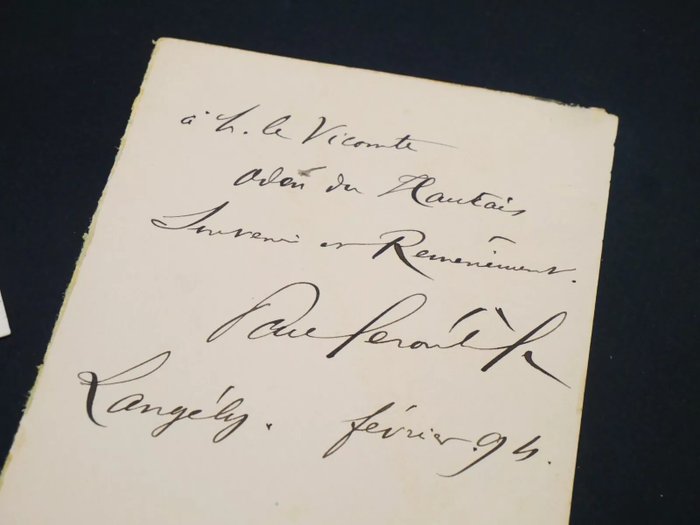 à M. le Vicomte
Odon du Hautais
Souvenir et Remerciement.
Paul Déroulède
Langély. février. 94.